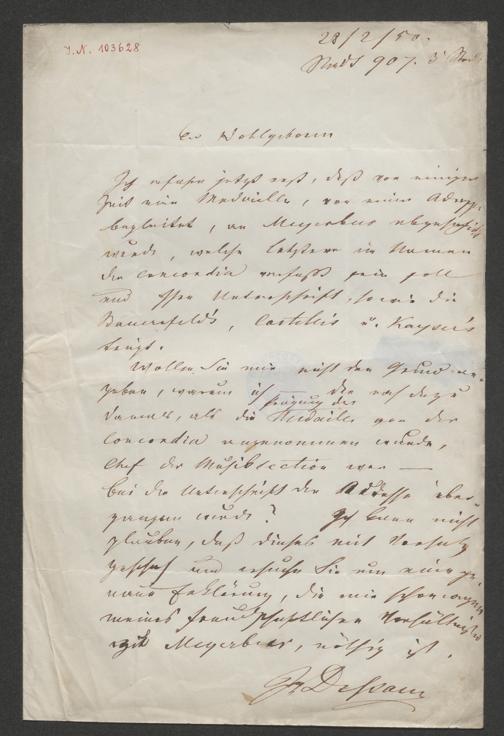 J.N. 103628
28/2/50.
Stadt 907. 3. Stock
Ew Wohlgeboren
Ich erfahre jetzt erst, daß vor einiger
Zeit eine Medaille, von einer Adresse
begleitet, an Meyerbeer abgeschickt
wurde, welche letztere im Namen
der Concordia verfaßt sein soll
und Ihre Unterschrift, sowie die
Bauernfeld's, Castellis u. Kaysers
trägt.
Wollen Sie mir nicht den Grund an-
geben, warum ich, der
Prägung der
damals, als die Medaille von der
Concordia angenommen wurde,
Chef der Musiksection war —
bei der Unterschrift der Adresse über-
gangen wurde? Ich kann nicht
glauben, daß dieses mit Vorsatz
geschah und ersuche Sie um eine ge-
naue Erklärung, die mir schon wegen
meines freundschaftlichen Verhältnisses
mit Meyerbeer, nöthig ist.
Dessauer